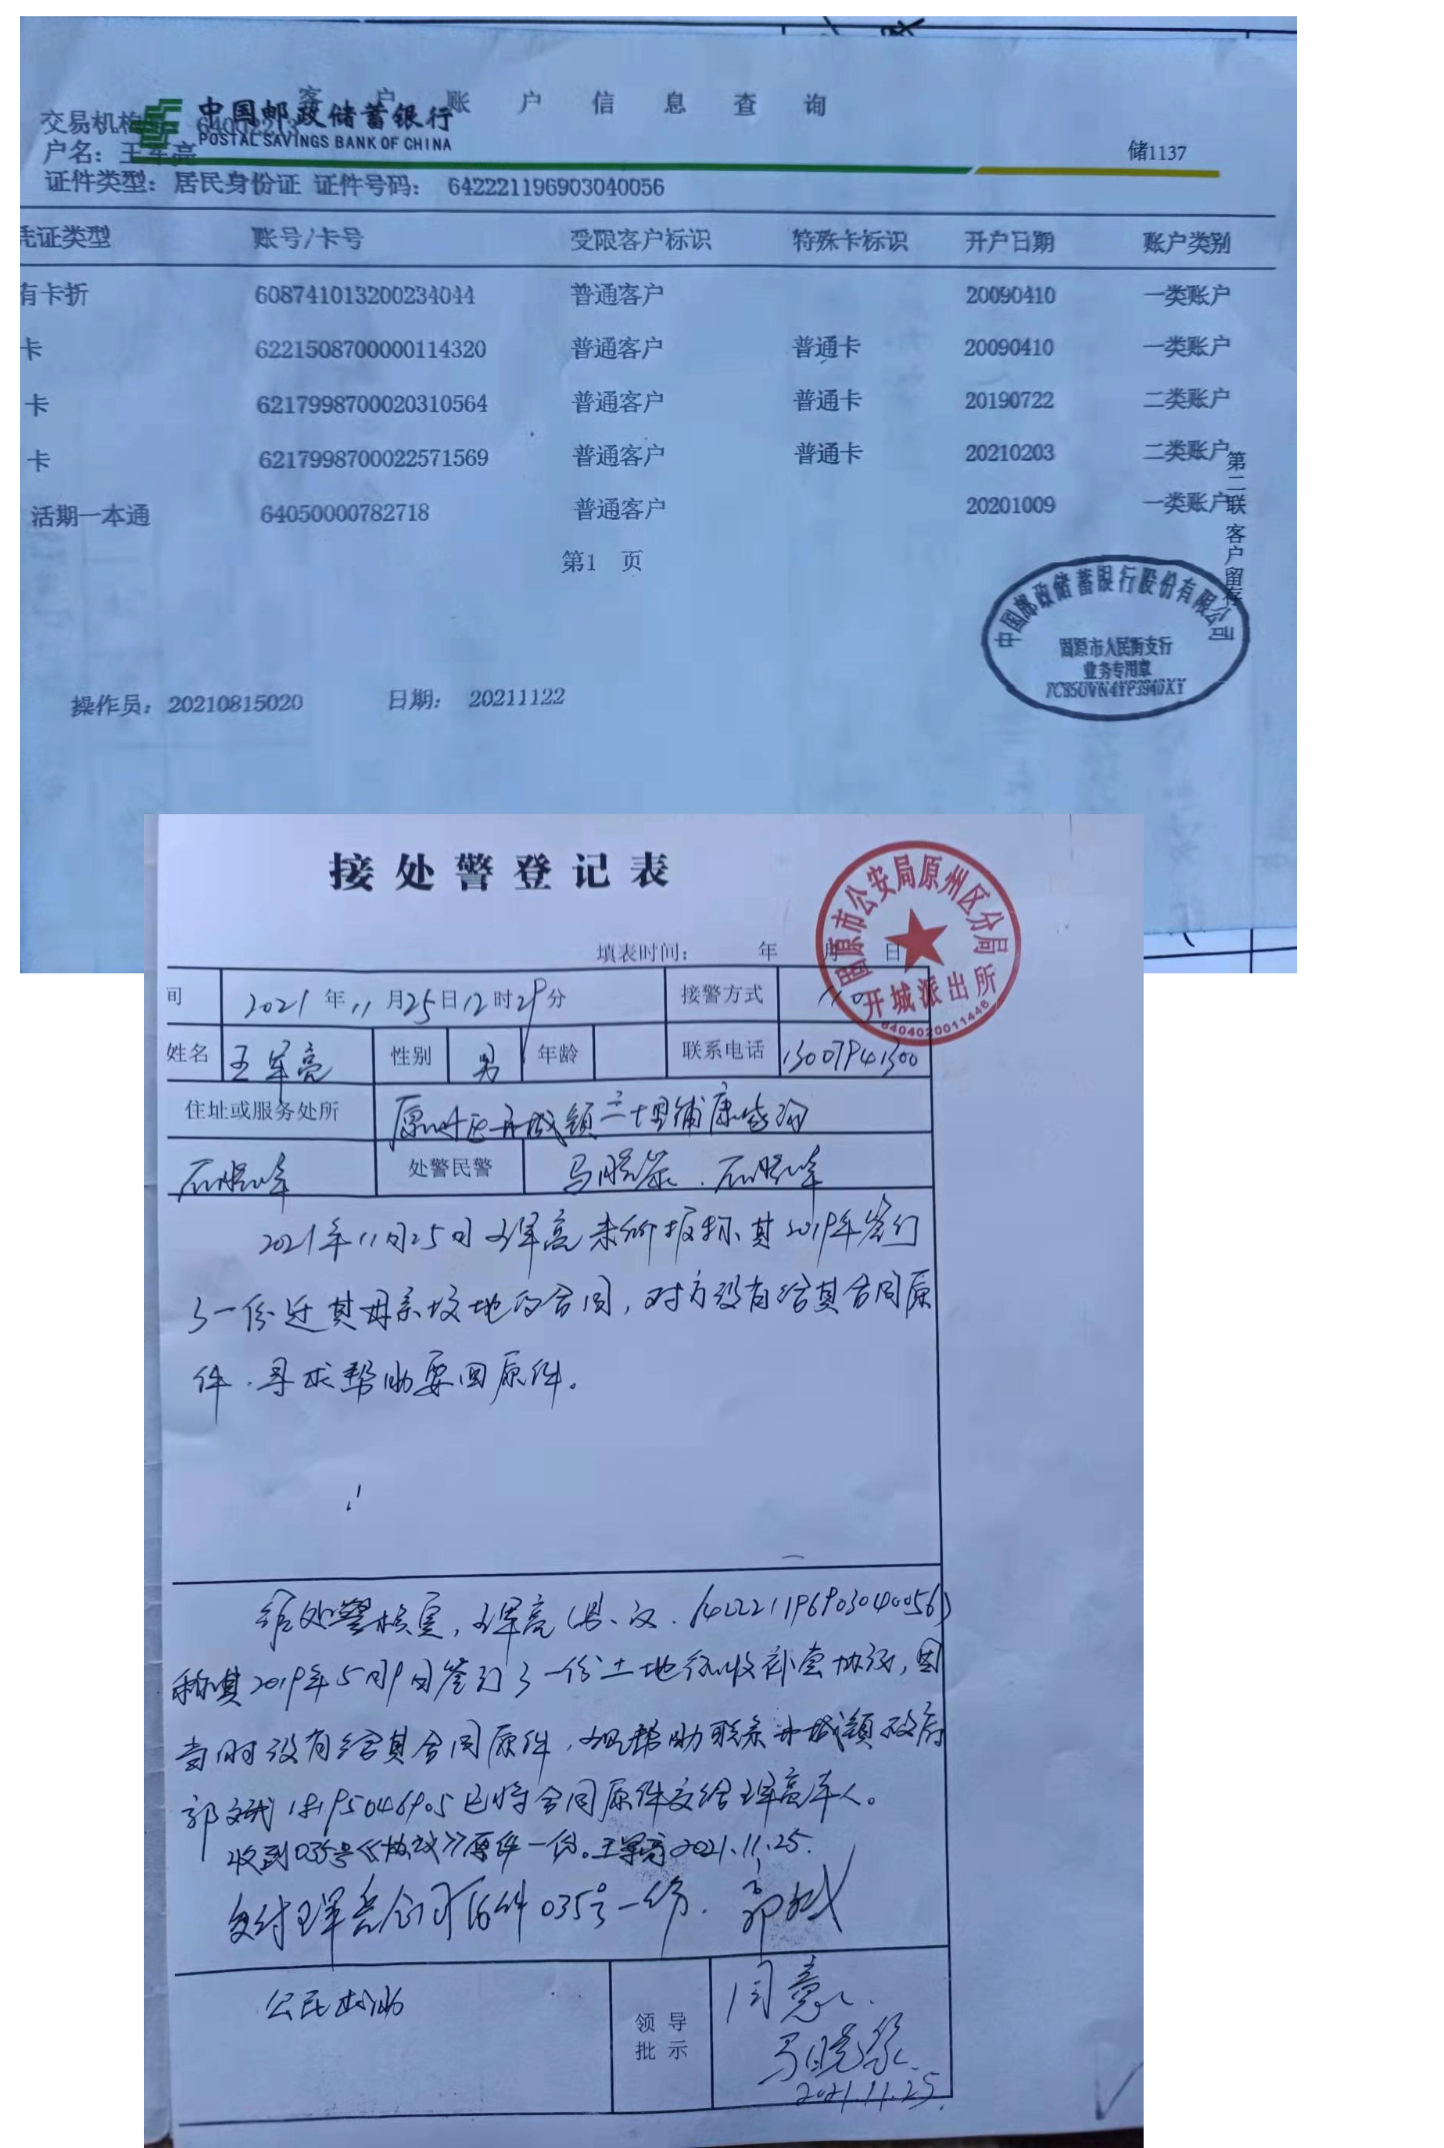 客户账户信息查询
中国邮政储蓄银行
POSTAL SAVINGS BANK OF CHINA
交易机构
储1137
户名：王军亮
证件类型：居民身份证 证件号码： 642221196903040056
凭证类型 账号/卡号 受限客户标识 特殊卡标识 开户日期 账户类别
有卡折 608741013200234044 普通客户 20090410 一类账户
卡 6221508700000114320 普通客户 普通卡 20090410 一类账户
卡 6217998700020310564 普通客户 普通卡 20190722 二类账户
卡 6217998700022571569 普通客户 普通卡 20210203 二类账户
活期一本通 64050000782718 普通客户 20201009 一类账户
第二联 客户留存
第1 页
中国邮政储蓄银行股份有限公司
固原市人民街支行
业务专用章
7C85UVN4YP394DXY
操作员：20210815020 日期： 20211122
接处警登记表
固原市公安局原州区分局
开城派出所
6404020011446
填表时间： 年 月 日
间 2021年11月25日12时29分 接警方式 110
姓名 王军亮 性别 男 年龄 联系电话 13007941300
住址或服务处所 原州区开城镇三十里铺康
石晓峰 处警民警 马晓荣、石晓峰
2021年11月25日王军亮来所报称，其2019年签订
了一份迁其母亲坟地的合同，对方没有给其合同原
件，寻求帮助要回原件。
经处警核实，王军亮（男、汉、642221196903040056）
称其2019年5月9日签订了一份土地征收补偿协议，因
当时没有给其合同原件，现帮助联系开城镇政府
郭文斌18195046905已将合同原件交给王军亮本人。
收到035号《协议》原件一份。王军亮2021.11.25.
交付王军亮合同原件035号一份. 郭斌
公民求助
领导批示
同意.
马晓荣
2021.11.25.